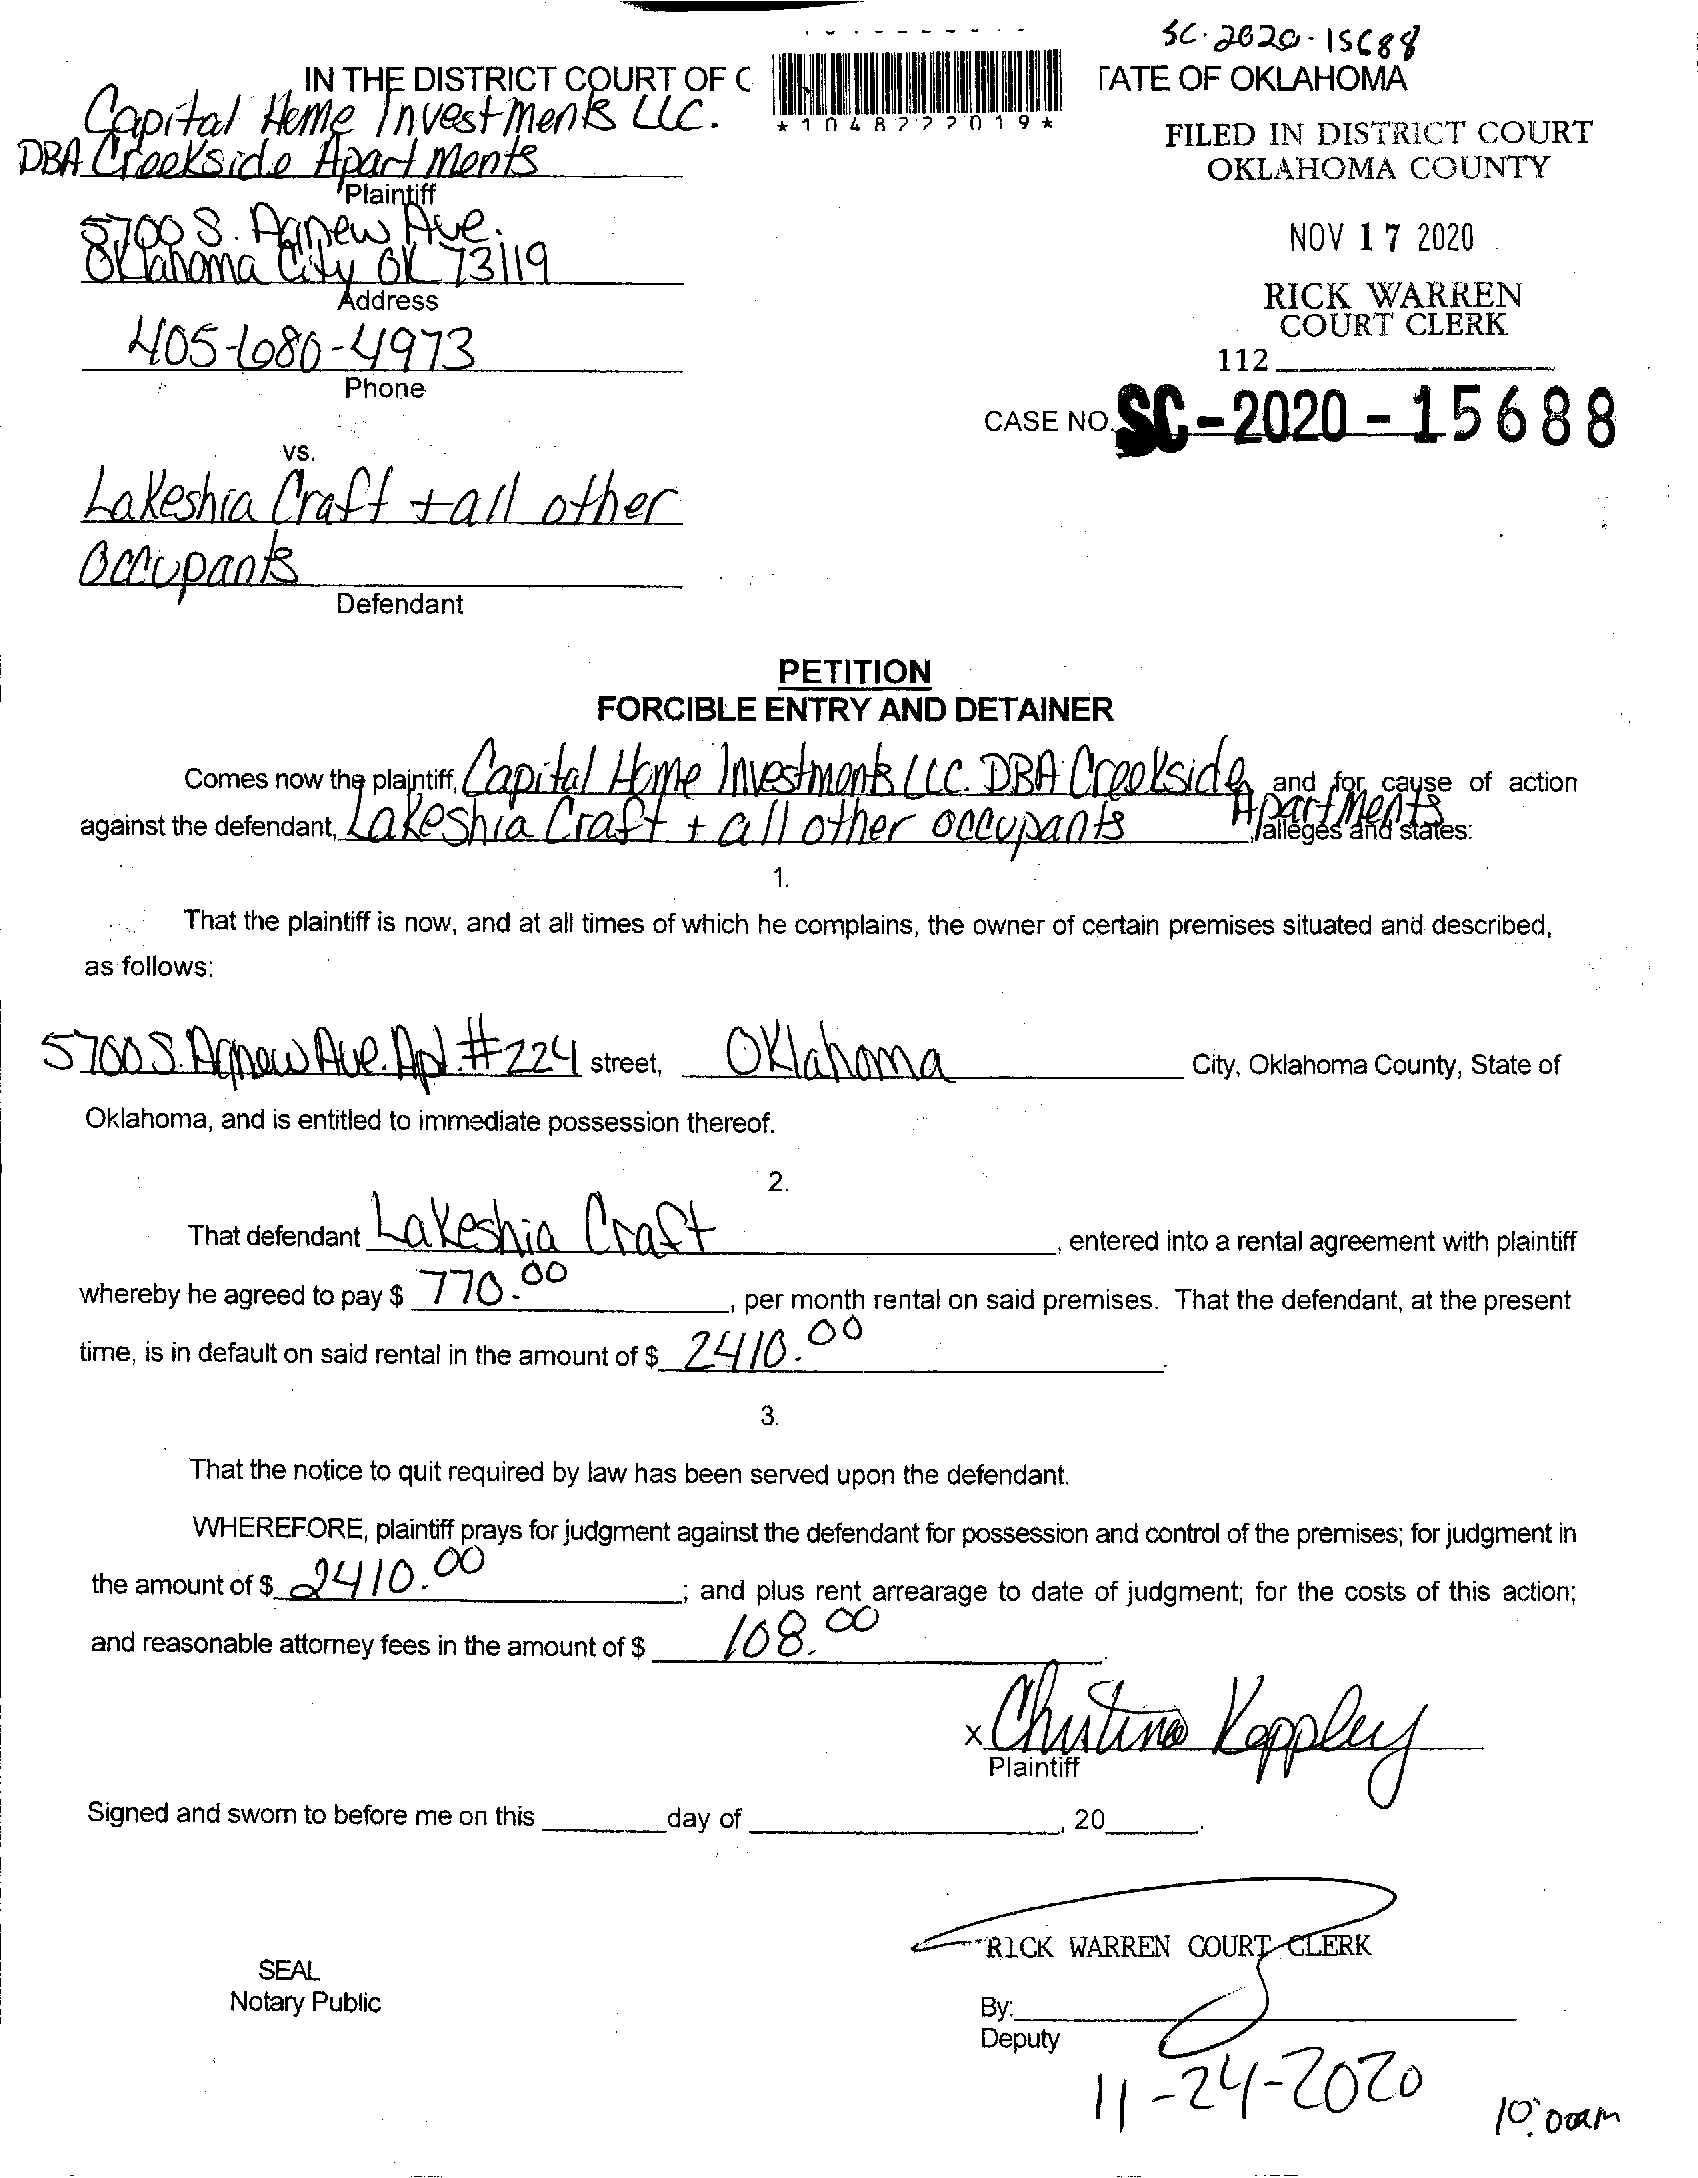 SC-2020-15688
IN THE DISTRICT COURT OF C
TATE OF OKLAHOMA
*1048777019*
Capital Home Investments LLC.
DBA Creekside Apartments
Plaintiff
FILED IN DISTRICT COURT
OKLAHOMA COUNTY
5700 S. Agnew Ave.
Oklahoma City OK 73119
Address
NOV 17 2020
RICK WARREN
COURT CLERK
405-680-4973
Phone
112
CASE NO. SC-2020-15688
vs.
Lakeshia Craft + all other
Occupants
Defendant
PETITION
FORCIBLE ENTRY AND DETAINER
Comes now the plaintiff, Capital Home Investments LLC. DBA Creekside Apartments and for cause of action
against the defendant, Lakeshia Craft + all other occupants, alleges and states:
1.
That the plaintiff is now, and at all times of which he complains, the owner of certain premises situated and described,
as follows:
5700 S. Agnew Ave. Apt. #224 street, Oklahoma City, Oklahoma County, State of
Oklahoma, and is entitled to immediate possession thereof.
2.
That defendant Lakeshia Craft, entered into a rental agreement with plaintiff
whereby he agreed to pay $ 770.00, per month rental on said premises. That the defendant, at the present
time, is in default on said rental in the amount of $ 2410.00.
3.
That the notice to quit required by law has been served upon the defendant.
WHEREFORE, plaintiff prays for judgment against the defendant for possession and control of the premises; for judgment in
the amount of $ 2410.00; and plus rent arrearage to date of judgment; for the costs of this action;
and reasonable attorney fees in the amount of $ 108.00.
x Christina Keppley
Plaintiff
Signed and sworn to before me on this ______ day of ______, 20____.
RICK WARREN COURT CLERK
SEAL
Notary Public
By:
Deputy
11-24-2020
10:00am